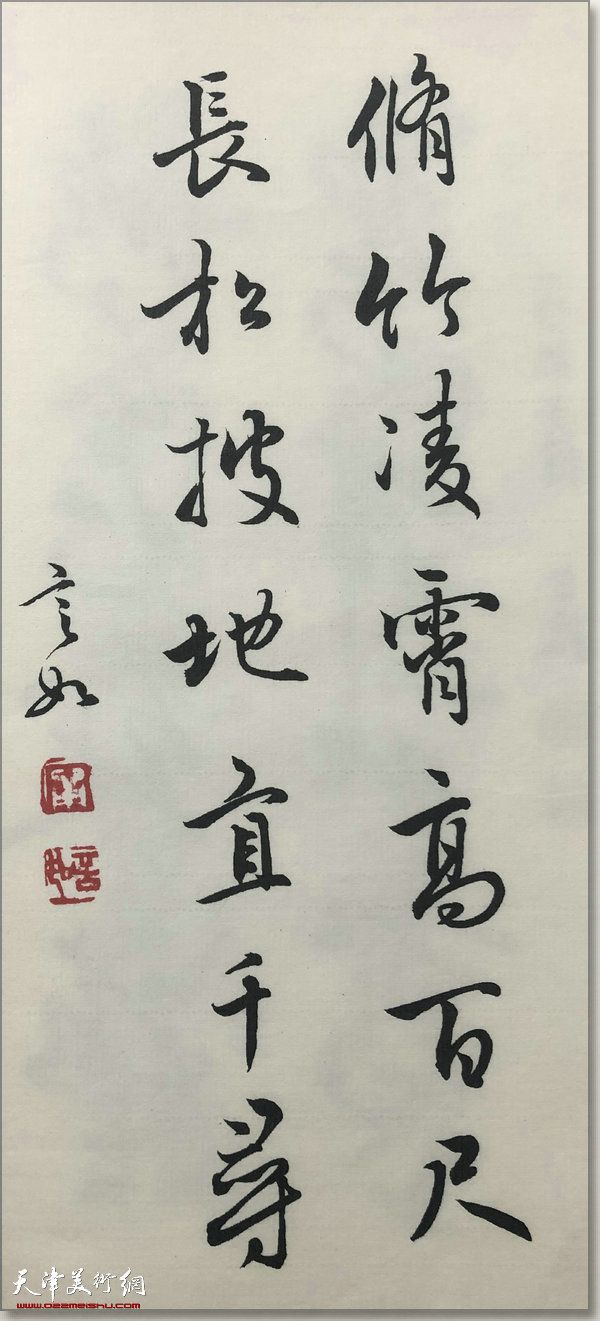 脩竹凌霄高百尺
長松拔地直千尋
言如
天津美術網
www.022meishu.com